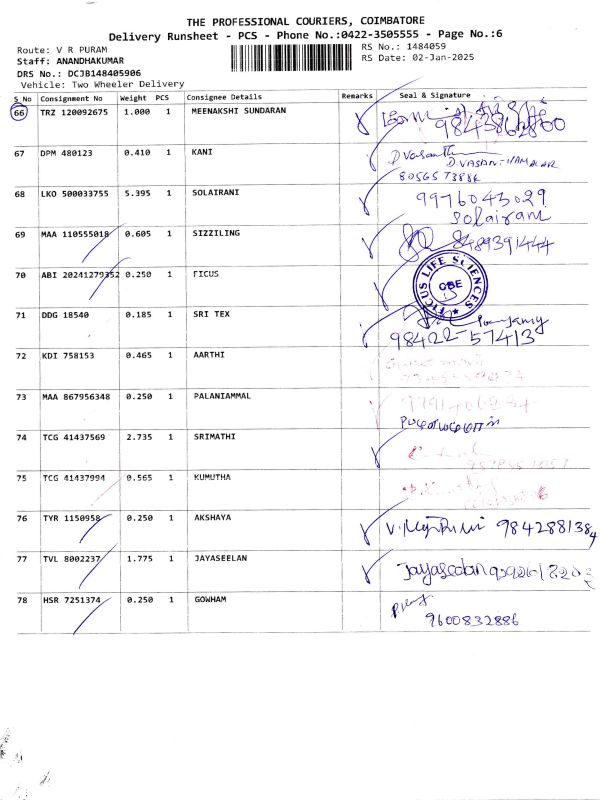 THE PROFESSIONAL COURIERS, COIMBATORE
Delivery Runsheet - PCS - Phone No.:0422-3505555 - Page No.:6
Route: V R PURAM
RS No.: 1484059
Staff: ANANDHAKUMAR
RS Date: 02-Jan-2025
DRS No.: DCJB148405906
Vehicle: Two Wheeler Delivery
S_No Consignment No Weight PCS Consignee Details Remarks Seal & Signature
66 TRZ 120092675 1.000 1 MEENAKSHI SUNDARAN
67 DPM 480123 0.410 1 KANI D.Vasanth
D.VASANTHAMALAR
80565 73886
68 LKO 500033755 5.395 1 SOLAIRANI 9976043029
Solairani
69 MAA 110555018 0.605 1 SIZZILING 8489391444
70 ABI 20241279352 0.250 1 FICUS FICUS LIFE SCIENCES CBE
71 DDG 18540 0.185 1 SRI TEX
98422-57413
72 KDI 758153 0.465 1 AARTHI
73 MAA 867956348 0.250 1 PALANIAMMAL
74 TCG 41437569 2.735 1 SRIMATHI
75 TCG 41437994 0.565 1 KUMUTHA
76 TYR 1150958 0.250 1 AKSHAYA 9842881384
77 TVL 8002237 1.775 1 JAYASEELAN Jayaseelan
78 HSR 7251374 0.250 1 GOWHAM
9600832886